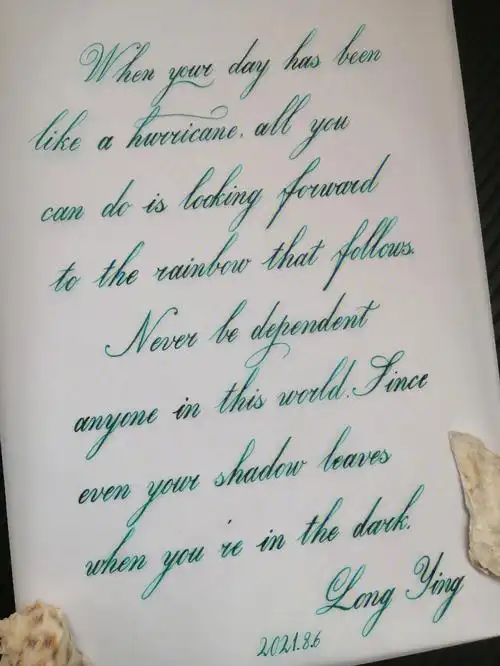 When your day has been
like a hurricane, all you
can do is looking forward
to the rainbow that follows.
Never be dependent
anyone in this world. Since
even your shadow leaves
when you 're in the dark.
Long Ying
2021.8.6